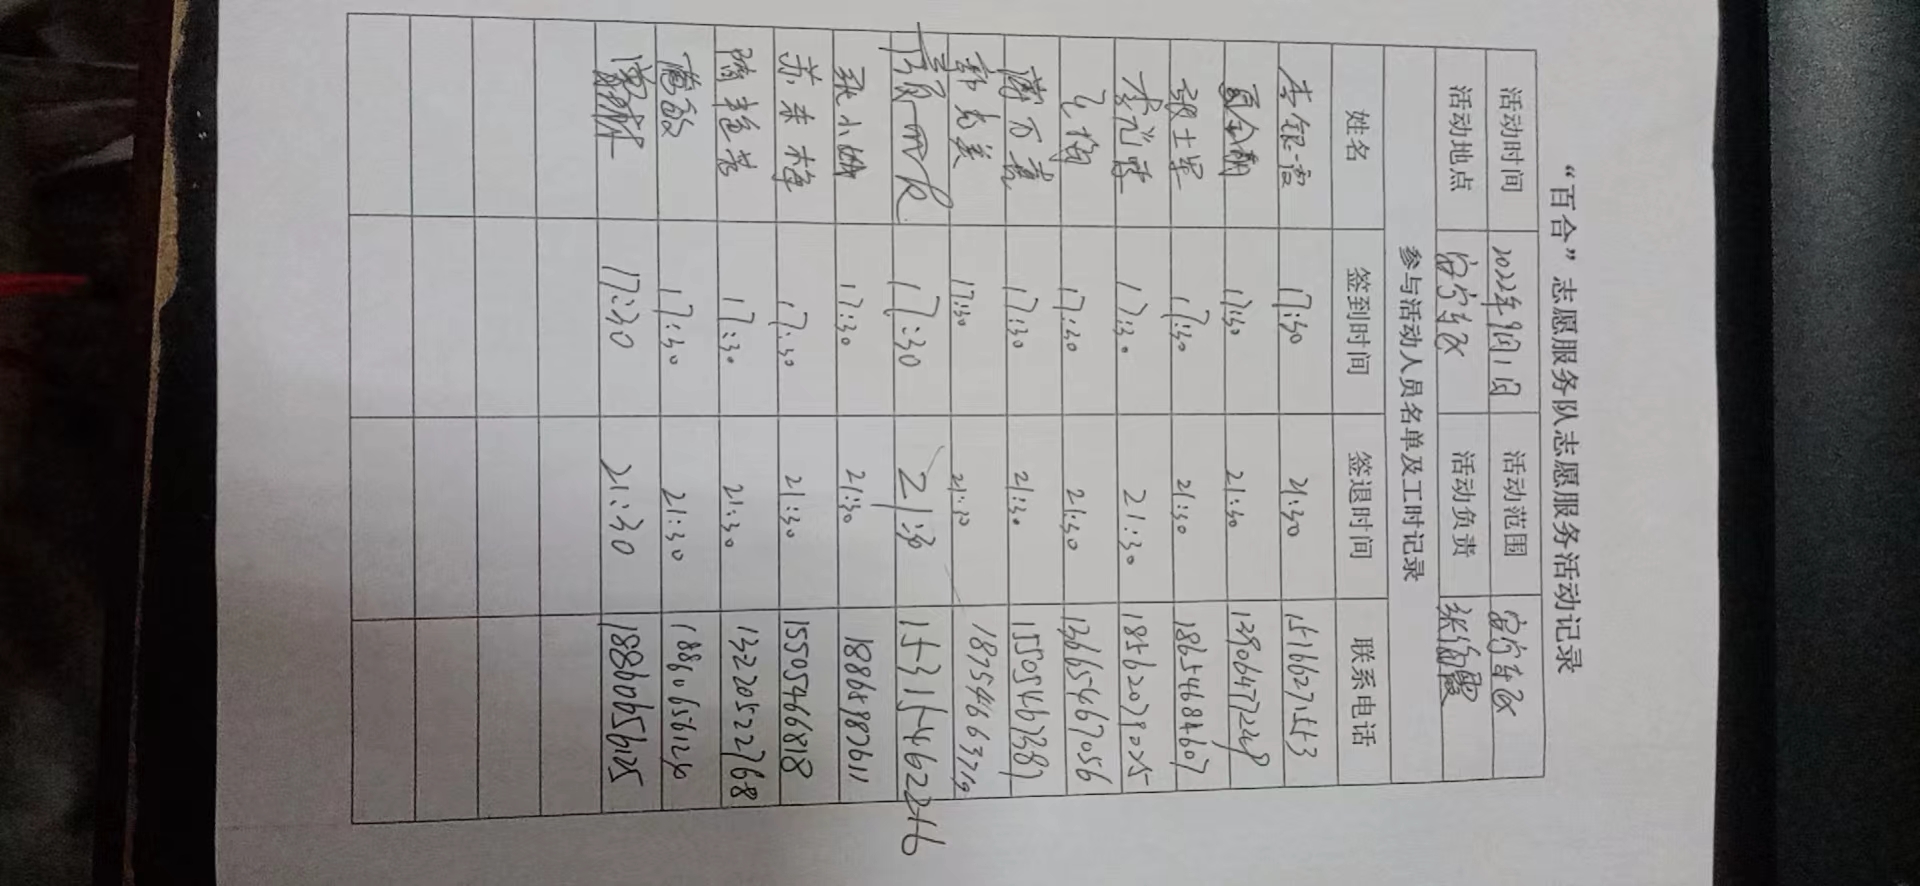 “百合”志愿服务队志愿服务活动记录
活动时间 2022年9月1日 活动范围 富宁社区
活动地点 富宁社区 活动负责 张红霞
参与活动人员名单及工时记录
姓名 签到时间 签退时间 联系电话
李银霞 17:30 21:30 15166271553
夏金朝 17:30 21:30 13906477248
张士军 17:30 21:30 18654684607
李光萍 17:30 21:30 18562079025
17:30 21:30 13665467056
蒋万喜 17:30 21:30 15505467387
郭秀美 17:30 21:30
17:30 21:30 15315462246
耿小燕 17:30 21:30 18868887611
苏来梅 17:30 21:30 15505466818
隋春芳 17:30 21:30 13220522768
17:30 21:30 18806561250
17:30 21:30 18860656125